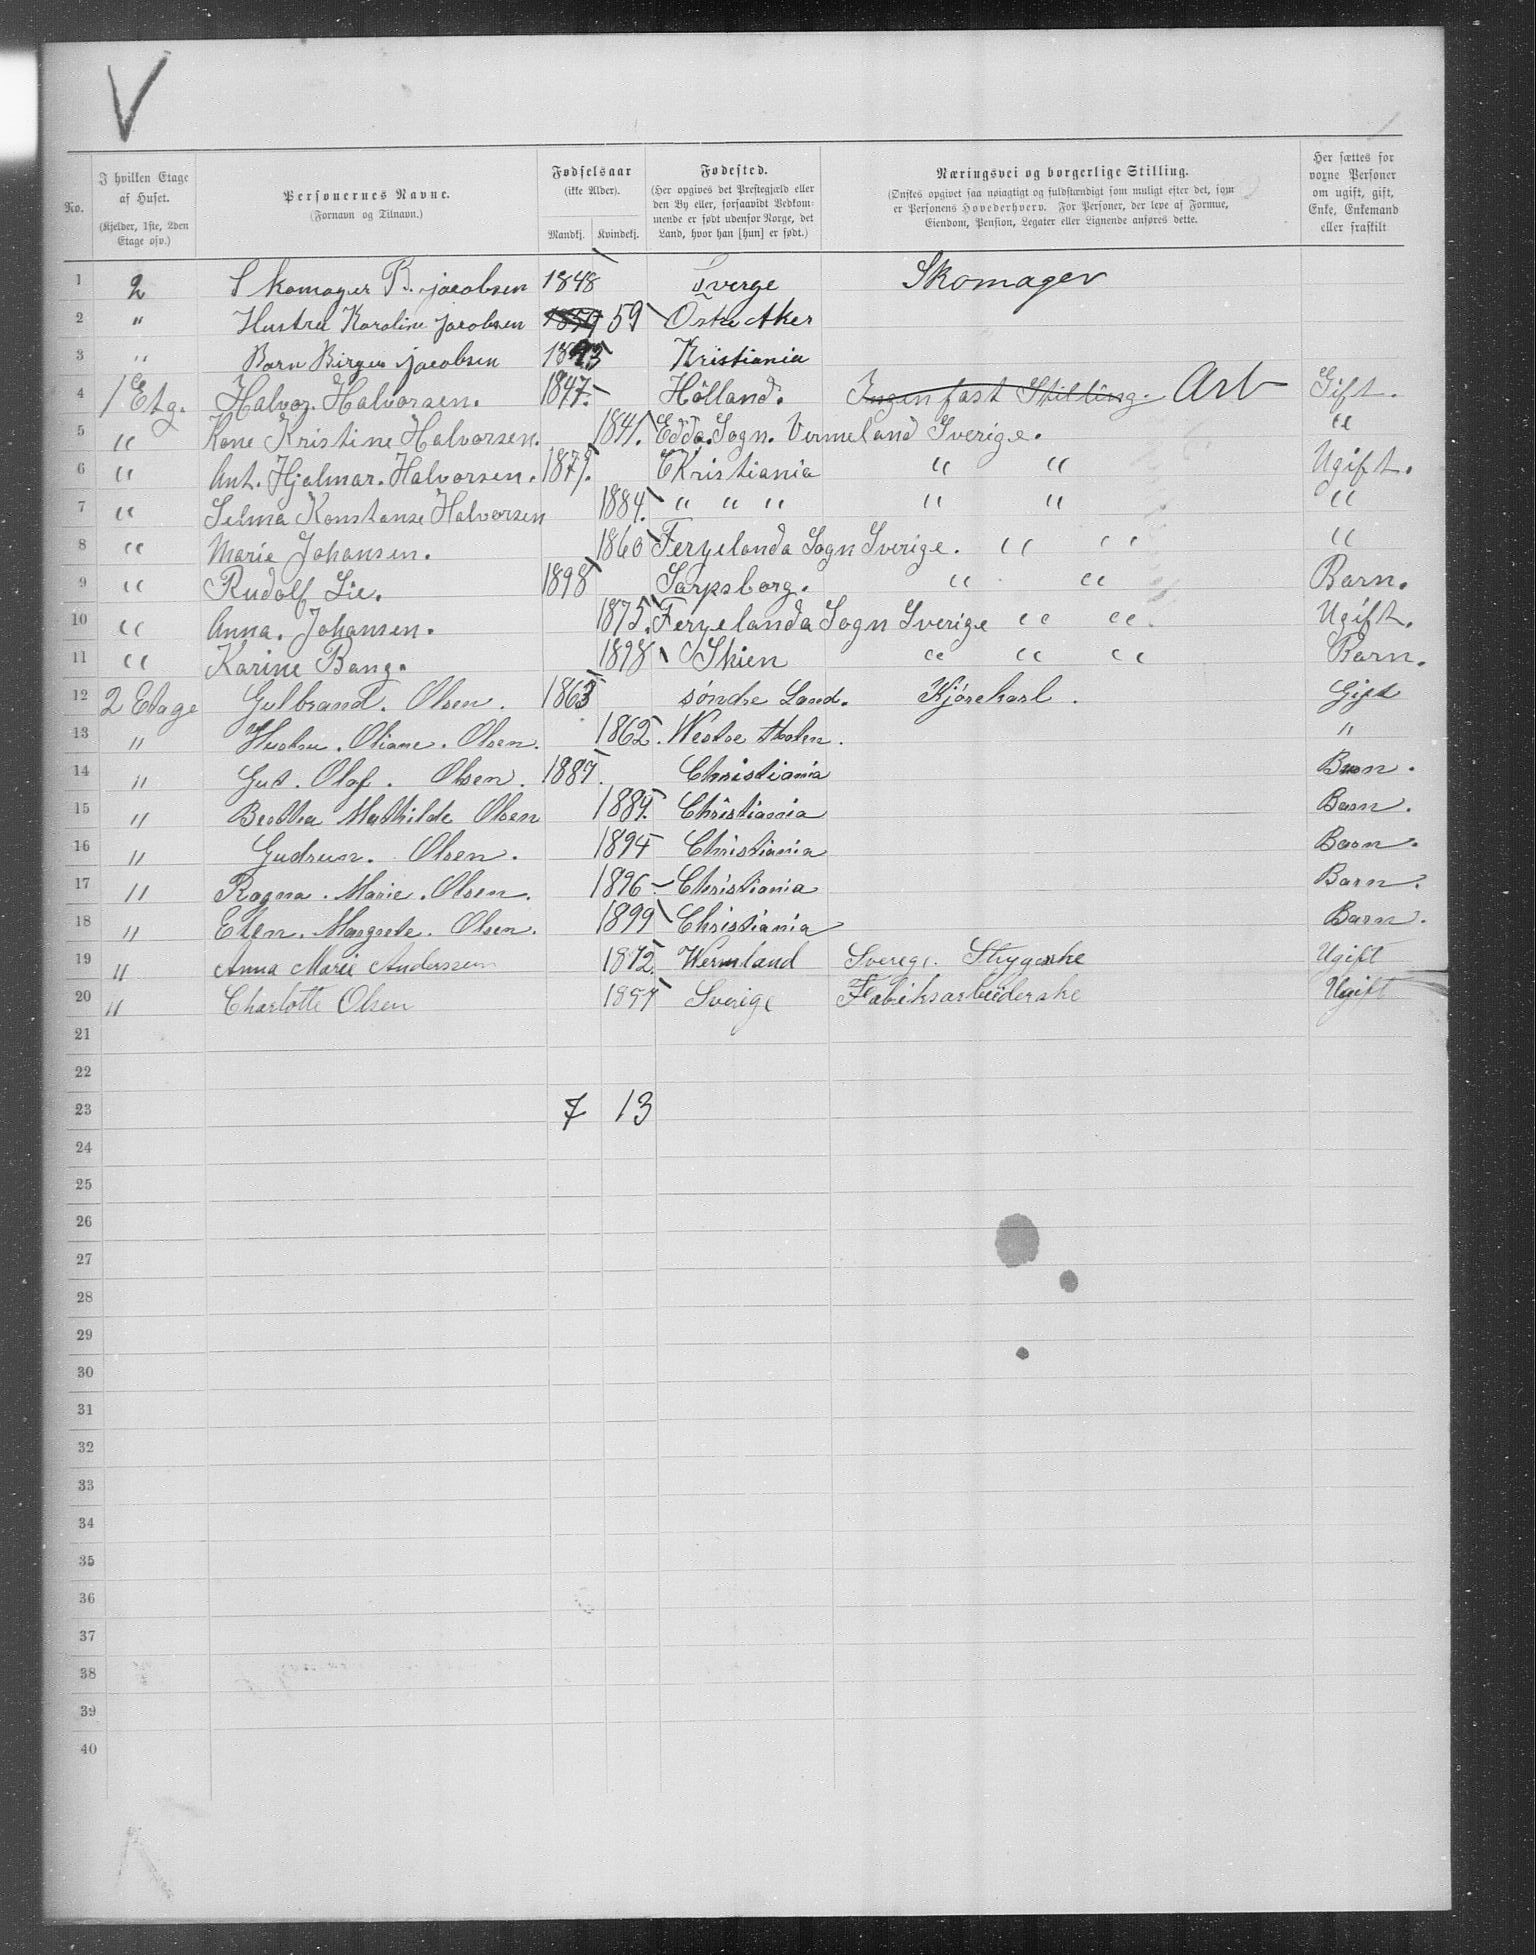 V
No.
I hvilken Etage af Huset.
(Kjelder, 1ste, 2den Etage osv.)
Personernes Navne.
(Fornavn og Tilnavn.)
Fødselsaar
(ikke Alder).
Mandkj. Kvindekj.
Fødested.
(Her opgives det Prestegjæld eller
den By eller, forsaavidt Vedkom-
mende er født udenfor Norge, det
Land, hvor han [hun] er født.)
Næringsvei og borgerlige Stilling.
(Ønskes opgivet saa nøiagtigt og fuldstændigt som muligt efter det, som
er Personens Hovederhverv. For Personer, der leve af Formue,
Eiendom, Pension, Legater eller Lignende anføres dette.
Her sættes for
voxne Personer
om ugift, gift,
Enke, Enkemand
eller fraskilt
1 2 Skomager B. jacobsen 1848 Sverge Skomager
2 " Hustru Karoline jacobsen 59 Østre Aker
3 " Barn Birger jacobsen Kristiania
4 1 Etg. Halvor. Halvorsen. 1847. Hölland. Ingen fast Stilling. Arb Gift.
5 " Kone Kristine Halvorsen. 1841. Edda. Sogn. Vermeland Sverige. "
6 " Ant. Hjalmar. Halvorsen. 1879. Kristiania " " Ugift.
7 " Selma Konstanse Halvorsen 1884. " " " " " "
8 " Marie Johansen. 1860 Feryelanda Sogn Sverige. " " "
9 " Rudolf Lie. 1898 Sarpsborg. " " Barn.
10 " Anna. Johansen. 1875. Feryelanda Sogn Sverige " " Ugift.
11 " Karine Bang. 1898 Skien " " " Barn.
12 2 Etage Gulbrand. Olsen. 1863 søndre Land. Kjørekarl. Gift
13 " Hustru. Oliane. Olsen. 1862. Westre "
14 " Gut. Olaf. Olsen. 1887. Christiania Barn.
15 " Bertha Mathilde Olsen 1889. Christiania Barn.
16 " Gudrun. Olsen. 1894 Christiania Barn.
17 " Ragna. Marie. Olsen. 1896 Christiania Barn.
18 " Ellen. Margrete. Olsen. 1899 Christiania Barn.
19 " Anna Marie Anderssen 1872. Wermland Sverege. Strygerske Ugift
20 " Charlotte Olsen 1857 Sverige Fabriksarbeiderske Ugift
21
22
23 7 13
24
25
26
27
28
29
30
31
32
33
34
35
36
37
38
39
40